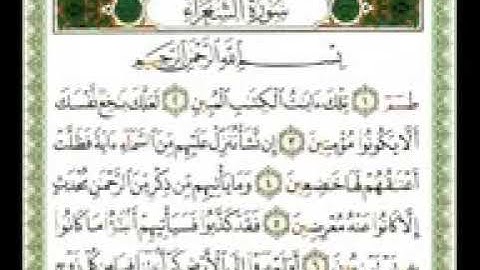 سُورَةُ الشُّعَرَاءِ
بِسْمِ اللَّهِ الرَّحْمَٰنِ الرَّحِيمِ
طسٓمٓ ١ تِلْكَ ءَايَٰتُ ٱلْكِتَٰبِ ٱلْمُبِينِ ٢ لَعَلَّكَ بَٰخِعٌ نَّفْسَكَ
أَلَّا يَكُونُوا۟ مُؤْمِنِينَ ٣ إِن نَّشَأْ نُنَزِّلْ عَلَيْهِم مِّنَ ٱلسَّمَآءِ ءَايَةً فَظَلَّتْ
أَعْنَٰقُهُمْ لَهَا خَٰضِعِينَ ٤ وَمَا يَأْتِيهِم مِّن ذِكْرٍ مِّنَ ٱلرَّحْمَٰنِ مُحْدَثٍ
إِلَّا كَانُوا۟ عَنْهُ مُعْرِضِينَ ٥ فَقَدْ كَذَّبُوا۟ فَسَيَأْتِيهِمْ أَنۢبَٰٓؤُا۟ مَا كَانُوا۟